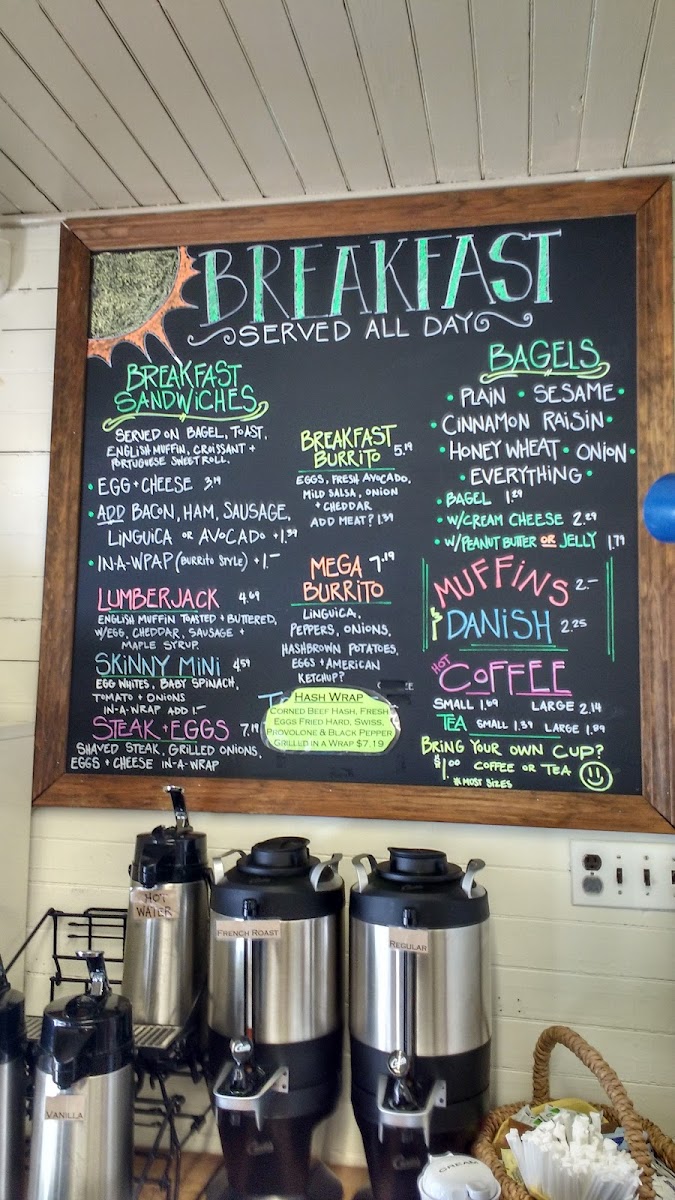 BREAKFAST
SERVED ALL DAY
BREAKFAST
SANDWICHES
SERVED ON BAGEL, TOAST,
ENGLISH MUFFIN, CROISSANT +
PORTUGUESE SWEET ROLL.
• EGG + CHEESE 3.19
• ADD BACON, HAM, SAUSAGE,
LINGUICA OR AVOCADO +1.39
• IN-A-WPAP (BURRITO STYLE) +1.-
LUMBERJACK 4.69
ENGLISH MUFFIN TOASTED + BUTTERED,
W/EGG, CHEDDAR, SAUSAGE +
MAPLE SYRUP.
SKINNY MINI 4.59
EGG WHITES, BABY SPINACH,
TOMATO + ONIONS
IN-A-WRAP ADD 1.-
STEAK + EGGS 7.19
SHAVED STEAK, GRILLED ONIONS,
EGGS + CHEESE IN-A-WRAP
BREAKFAST
BURRITO 5.19
EGGS, FRESH AVOCADO,
MILD SALSA, ONION
+ CHEDDAR
ADD MEAT? 1.39
MEGA 7.19
BURRITO
LINGUICA,
PEPPERS, ONIONS,
HASHBROWN POTATOES,
EGGS + AMERICAN
KETCHUP?
HASH WRAP
CORNED BEEF HASH, FRESH
EGGS FRIED HARD, SWISS,
PROVOLONE & BLACK PEPPER
GRILLED IN A WRAP $7.19
BAGELS
• PLAIN • SESAME •
• CINNAMON RAISIN •
• HONEY WHEAT • ONION •
• EVERYTHING •
• BAGEL 1.29
• W/CREAM CHEESE 2.29
• W/PEANUT BUTTER OR JELLY 1.79
MUFFINS 2.-
& DANISH 2.25
HOT COFFEE
SMALL 1.69 LARGE 2.14
TEA SMALL 1.39 LARGE 1.89
BRING YOUR OWN CUP?
$1.00 COFFEE OR TEA
* MOST SIZES
HOT
WATER
FRENCH ROAST
REGULAR
VANILLA
CREAM